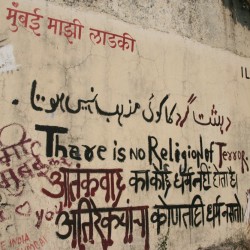 मुंबई माझी लाडकी
IL
دہشت گرد کا کوئی مذہب نہیں ہوتا۔
There is no Religion of Terror.
मी
मुंबई
आतंकवाद का कोई धर्म नहीं होता है।
अतिरेक्यांचा कोणताही धर्म नसतो
INDIA